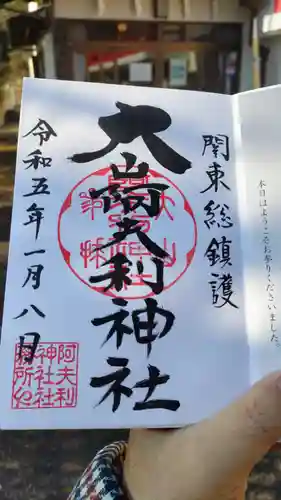 関東総鎮護
大山阿夫利神社
令和五年一月八日
阿夫利
神社社
務所之
本日はようこそお参りくださいました。